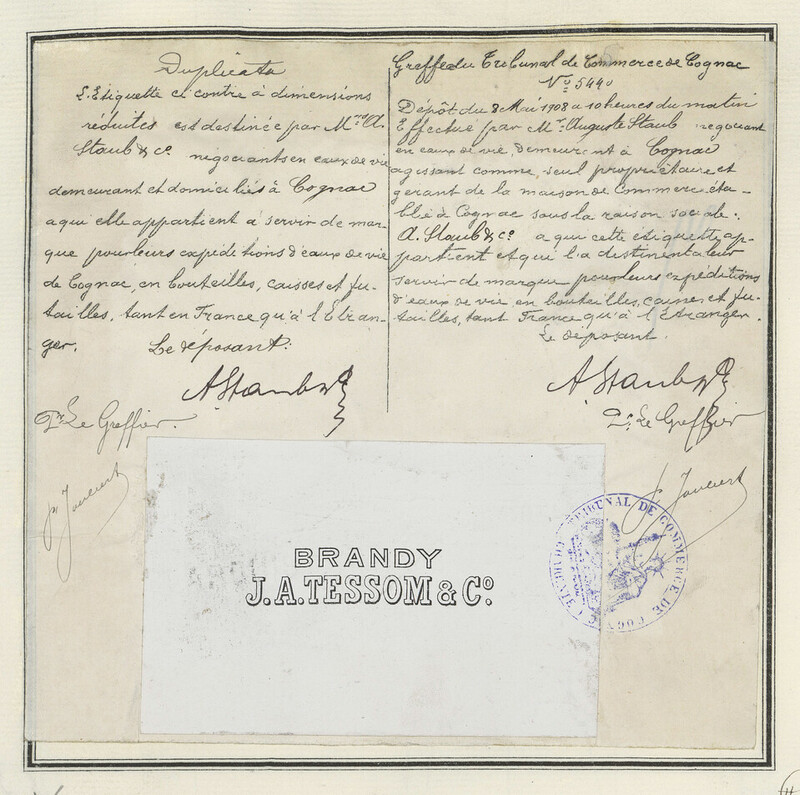 Duplicata
L'Etiquette ci contre à dimensions
réduites est destinée par Mrs A.
Staub & Co. négociants en eaux de vie
demeurant et domiciliés à Cognac
a qui elle appartient à servir de mar-
que pour leurs expéditions d'eaux de vie
de Cognac, en bouteilles, caisses et fu-
tailles, tant en France qu'à l'Etran-
ger. Le déposant:
A Staub & Co
Pr Le Greffier.
Greffe du Tribunal de Commerce de Cognac
No 5440
Dépôt du 8 Mai 1908 a 10 heures du matin
Effectué par Mr. Auguste Staub négociant
en eaux de vie, demeurant à Cognac
agissant comme, seul propriétaire et
gérant de la maison de Commerce éta-
blie à Cognac sous la raison sociale:
A. Staub & Co. a qui cette etiquette ap-
partient et qui l'a destinent à leur
servir de marque pour leurs expéditions
d'eaux de vie en bouteilles, caisses et fu-
tailles, tant France qu'à l'étranger.
Le déposant.
A Staub & Co
Pr. Le Greffier
BRANDY
J.A. TESSOM & Co.
TRIBUNAL DE COMMERCE DE COGNAC